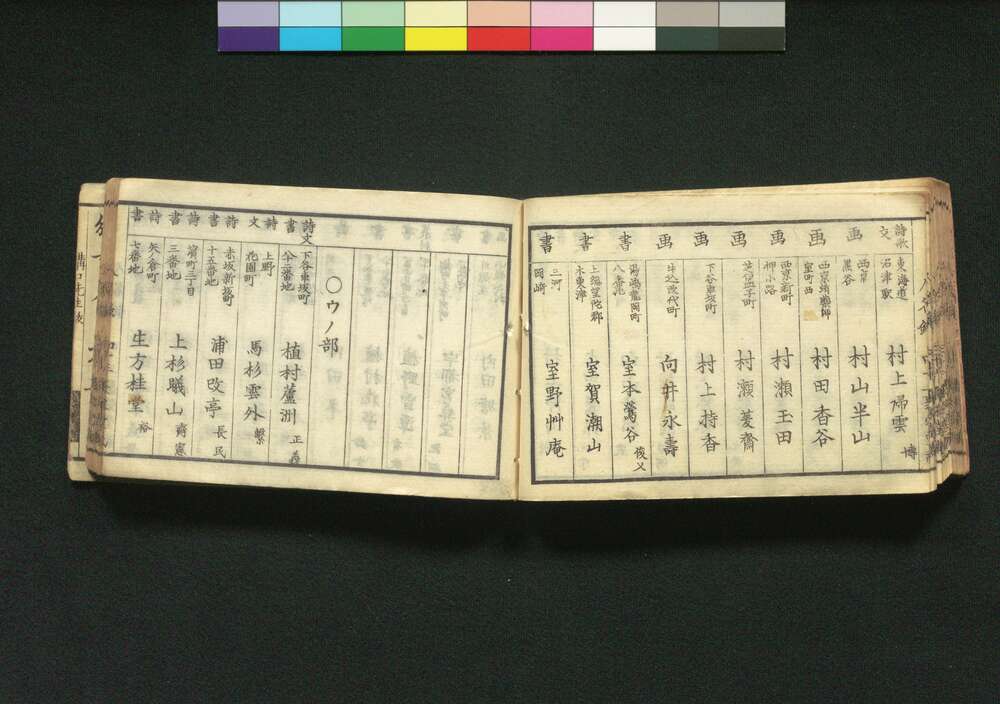 詩歌
文
東海道
沼津駅
村上帰雲
博
画
西京
黒谷
村山半山
画
西京蛸薬師
室町西
村田香谷
画
西京新町
柳小路
村瀬玉田
画
村瀬菱齋
画
下谷車坂町
村上持香
画
牛込改代町
向井永壽
書
湯嶋龍岡町
八番地
室本鶯谷
俊乂
書
上総望陀郡
木更津
室賀潮山
書
三河
岡崎
室野艸庵
〇ウノ部
詩文
書
下谷車坂町
廿二番地
植村蘆洲
正義
詩
文
上野
花園町
馬杉雲外
繋
詩
書
赤坂新坂町
十五番地
浦田改亭
長民
詩
書
濱町二丁目
三番地
上杉曦山
齊憲
詩
書
矢ノ倉町
七番地
生方桂堂
裕